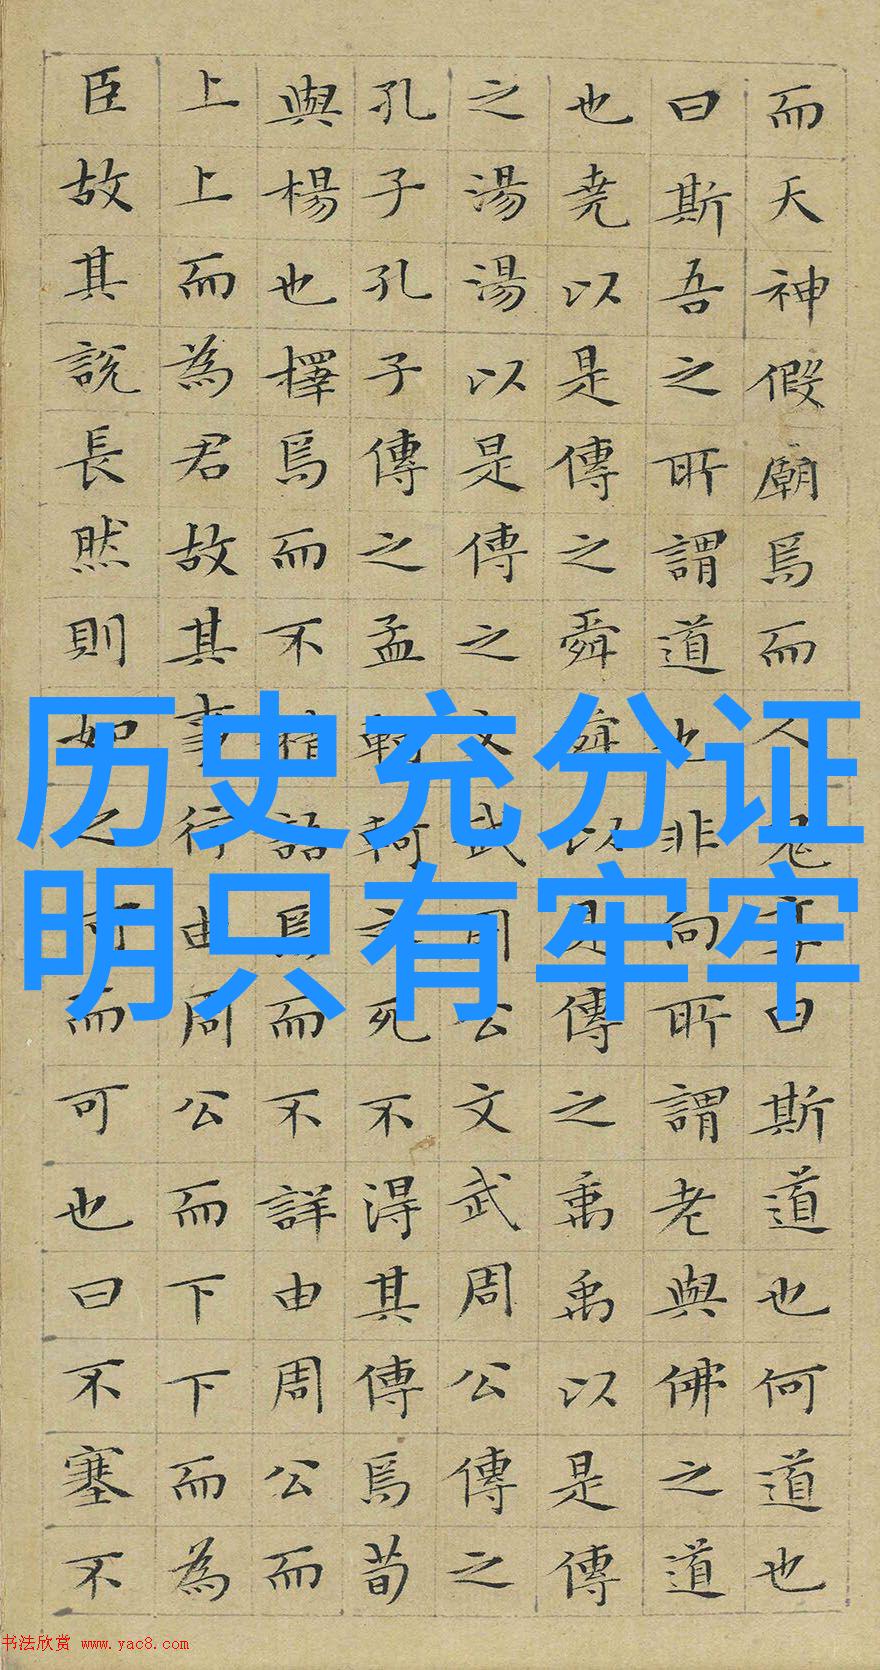 而天神假廟焉而人鬼享曰斯道也何道也
曰斯吾之所謂道也非向所謂老與佛之道
也堯以是傳之舜舜以是傳之禹禹以是傳
之湯湯以是傳之文武周公文武周公傳之
孔子孔子傳之孟軻軻之死不得其傳焉荀
與楊也擇焉而不精語焉而不詳由周公而
上上而為君故其事行由周公而下下而為
臣故其說長然則如之何而可也曰不塞不
历史充分证
明只有牢牢
书法欣赏 www.yac8.com